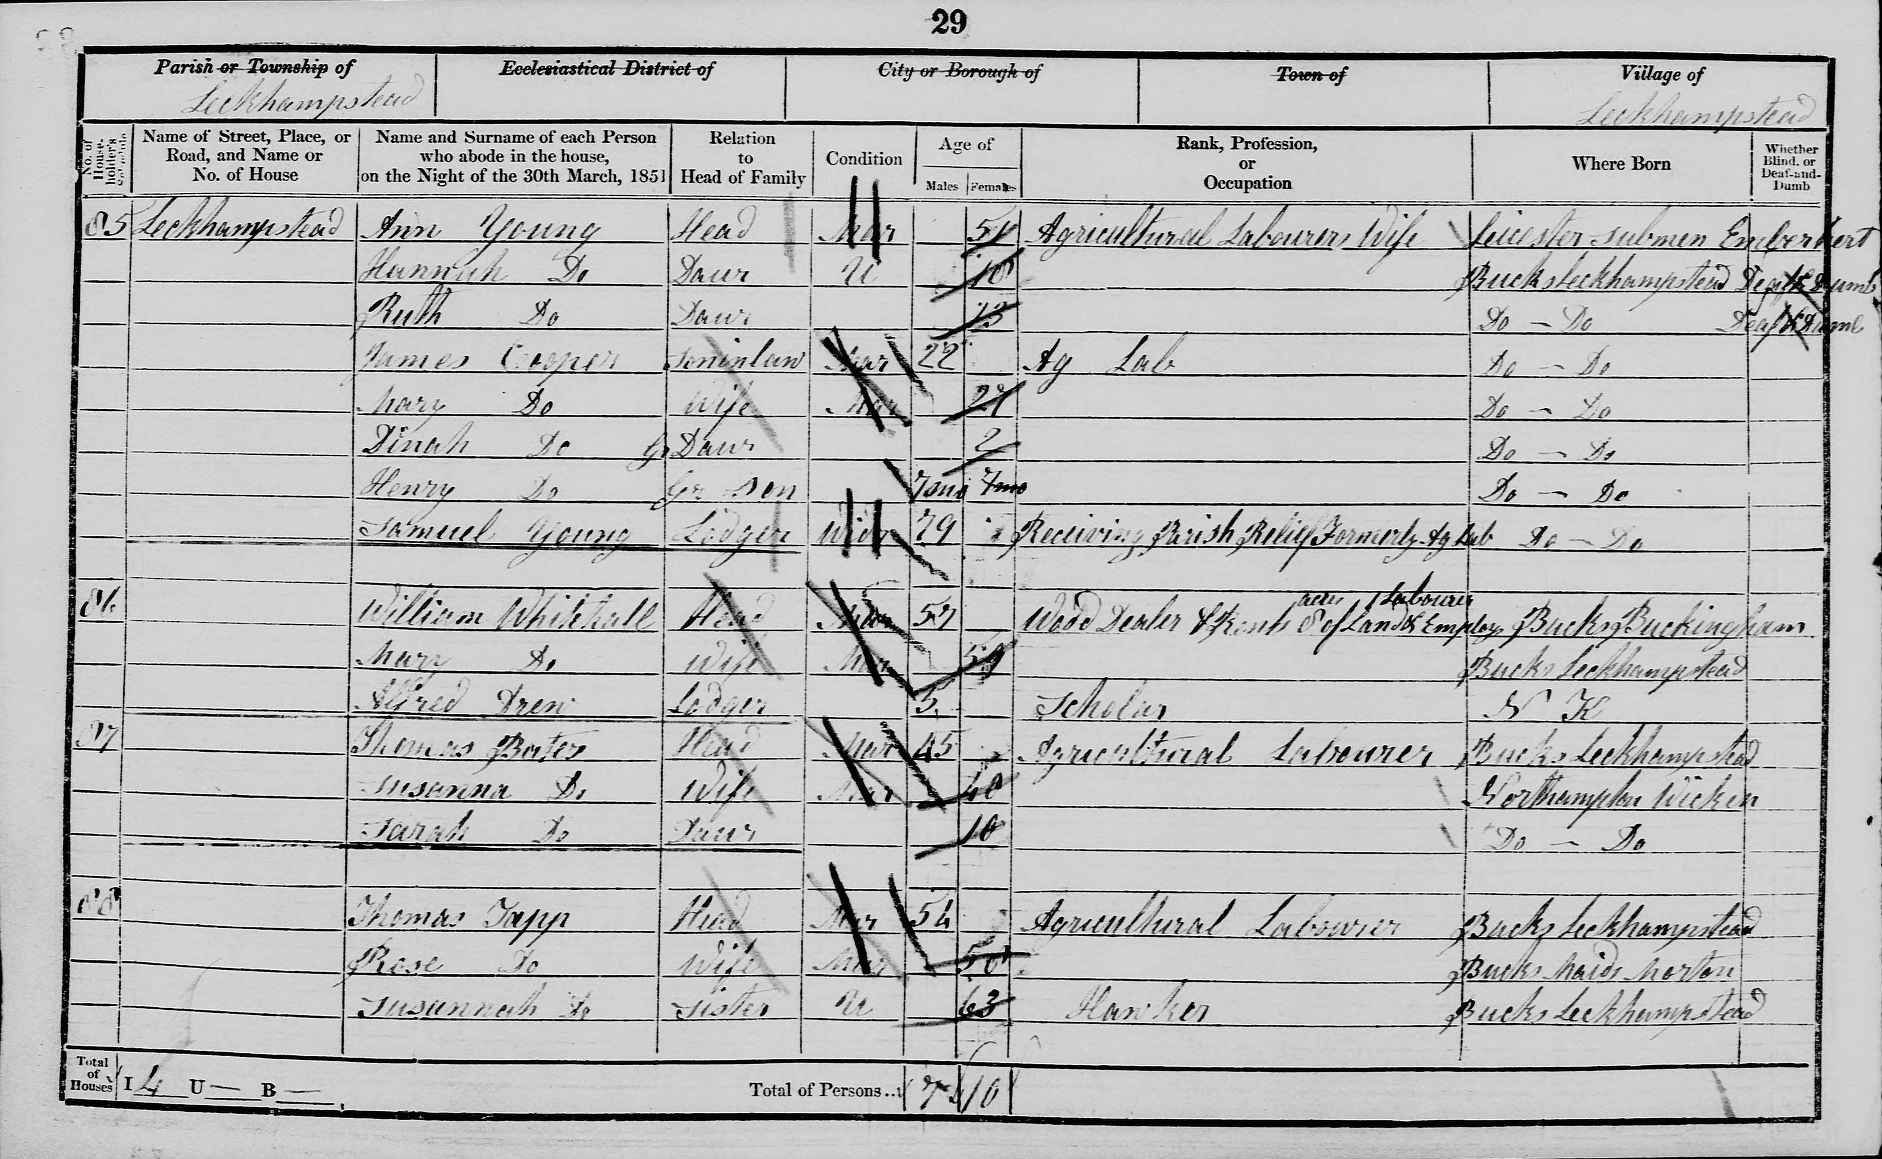 29
Parish or Township of Ecclesiastical District of City or Borough of Town of Village of
Leckhampstead Leckhampstead
No. of House-holder's Schedule
Name of Street, Place, or Road, and Name or No. of House
Name and Surname of each Person who abode in the house, on the Night of the 30th March, 1851
Relation to Head of Family
Condition
Age of
Males Females
Rank, Profession, or Occupation
Where Born
Whether Blind, or Deaf-and-Dumb
85 Leckhampstead Ann Young Head Mar Agricultural Labourers Wife Leicester
Hannah Do Daur U 18 Bucks Leckhampstead Deaf & Dumb
Ruth Do Daur 13 Do - Do Deaf & Dumb
James Cooper Soninlaw Mar 22 Ag Lab Do - Do
Mary Do Wife Mar Do - Do
Dinah Do Gr Daur 2 Do - Do
Henry Do Gr Son 7mo 7mo Do - Do
Samuel Young Lodger Widr 79 Receiving Parish Relief Formerly Ag Lab Do - Do
86 William Whitehall Head Mar Wood Dealer & Rents 8 acres of Land & Employs 1 Labourer Bucks Buckingham
Mary Do Wife Mar Bucks Leckhampstead
Alfred Drew Lodger 5 Scholar N K
87 Thomas Bates Head Mar 45 Agricultural Labourer Bucks Leckhampstead
Susanna Do Wife Mar 40 Northampton Wicken
Sarah Do Daur 10 Do - Do
88 Thomas Tapp Head Mar 54 Agricultural Labourer Bucks Leckhampstead
Rose Do Wife Mar Bucks Maids Morton
Susannah Do Sister U 63 Hawker Bucks Leckhampstead
Total of Houses I 4 U — B — Total of Persons.. 7 10